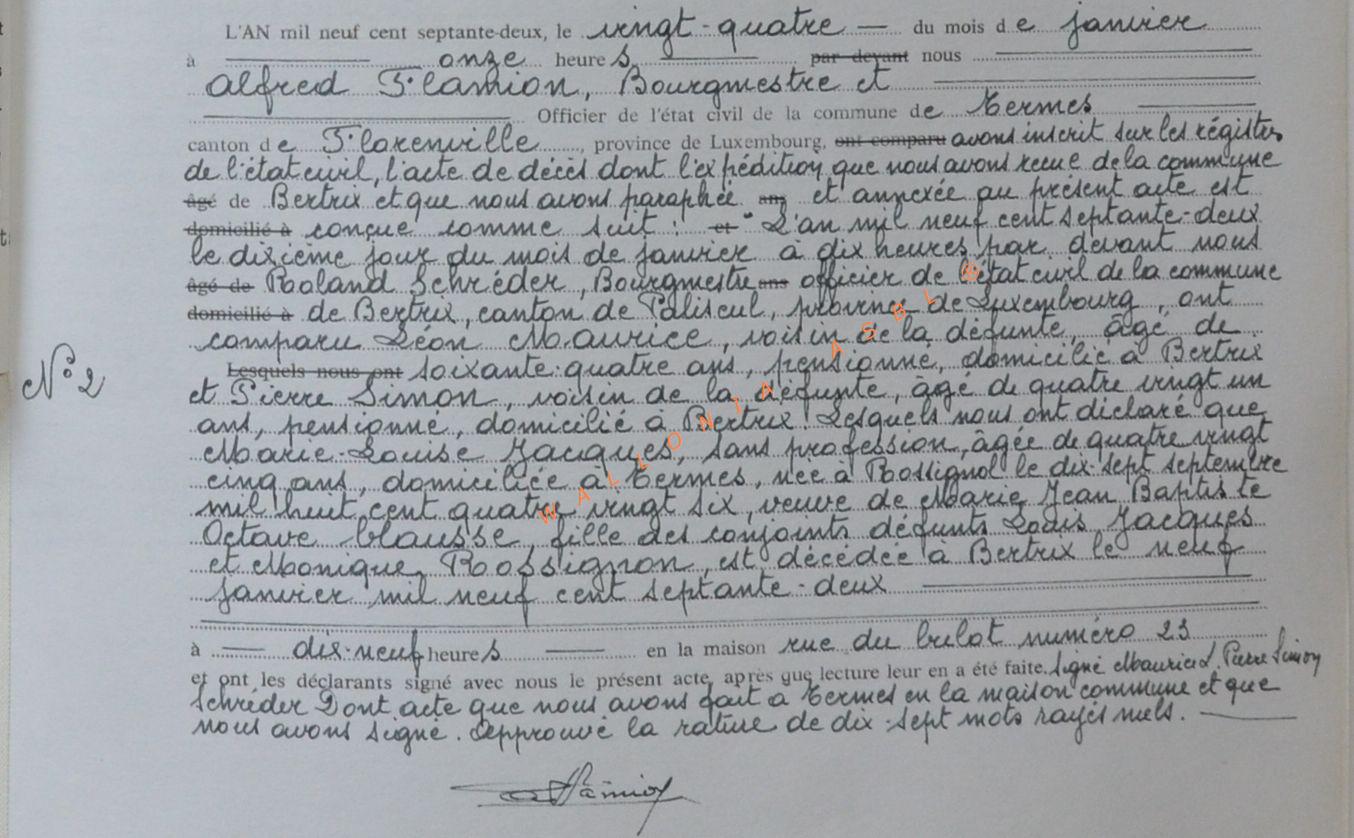 L'AN mil neuf cent septante-deux, le vingt-quatre — du mois de janvier
à ——— onze heures ——— par devant nous ———
Alfred Hamion, Bourgmestre et ———
——— Officier de l'état civil de la commune de Termes ———
canton de Florenville, province de Luxembourg, ont comparu avons inscrit sur les régistres
de l'état civil, l'acte de décès dont l'expédition que nous avons recue de la commune
âgé de Bertrix et que nous avons paraphée ans et annexée au présent acte est
domicilié à conçue comme suit : et "L'an mil neuf cent septante-deux
le dixième jour du mois de janvier à dix heures, par devant nous
âgé de Roland Schréder, Bourgmestre ans officier de l'état civil de la commune
domicilié à de Bertrix, canton de Paliseul, province de Luxembourg, ont
comparu Léon Maurice, voisin de la défunte, âgé de
N° 2
Lesquels nous ont soixante-quatre ans, pensionné, domicilié à Bertrix
et Pierre Simon, voisin de la défunte, âgé de quatre vingt un
ans, pensionné, domicilié à Bertrix. Lesquels nous ont déclaré que
Marie-Louise Jacques, sans profession, âgée de quatre vingt
cinq ans, domiciliée à Termes, née à Rossignol le dix-sept septembre
mil huit cent quatre vingt six, veuve de Marie Jean Baptiste
Octave Clausse, fille des conjoints défunts Louis Jacques
et Monique Rossignon, est décédée à Bertrix le neuf
janvier mil neuf cent septante-deux ———
à — dix-neuf heures — en la maison rue du culot numéro 23
et ont les déclarants signé avec nous le présent acte, après que lecture leur en a été faite. Signé Maurice L. Pierre Simon
Schréder Dont acte que nous avons fait à Termes en la maison commune et que
nous avons signé. Approuvé la rature de dix-sept mots rayés nuls. ———
WALLONIA ASBL ©